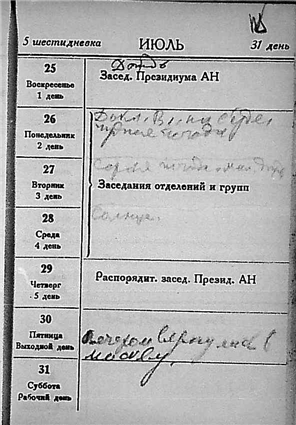 5 шестидневка ИЮЛЬ 31 день
25
Воскресенье
1 день
Дождь
Засед. Президиума АН
26
Понедельник
2 день
27
Вторник
3 день
Заседания отделений и групп
28
Среда
4 день
Солнце.
29
Четверг
5 день
Распорядит. засед. Презид. АН
30
Пятница
Выходной день
Вечером вернулись в
Москву.
31
Суббота
Рабочий день